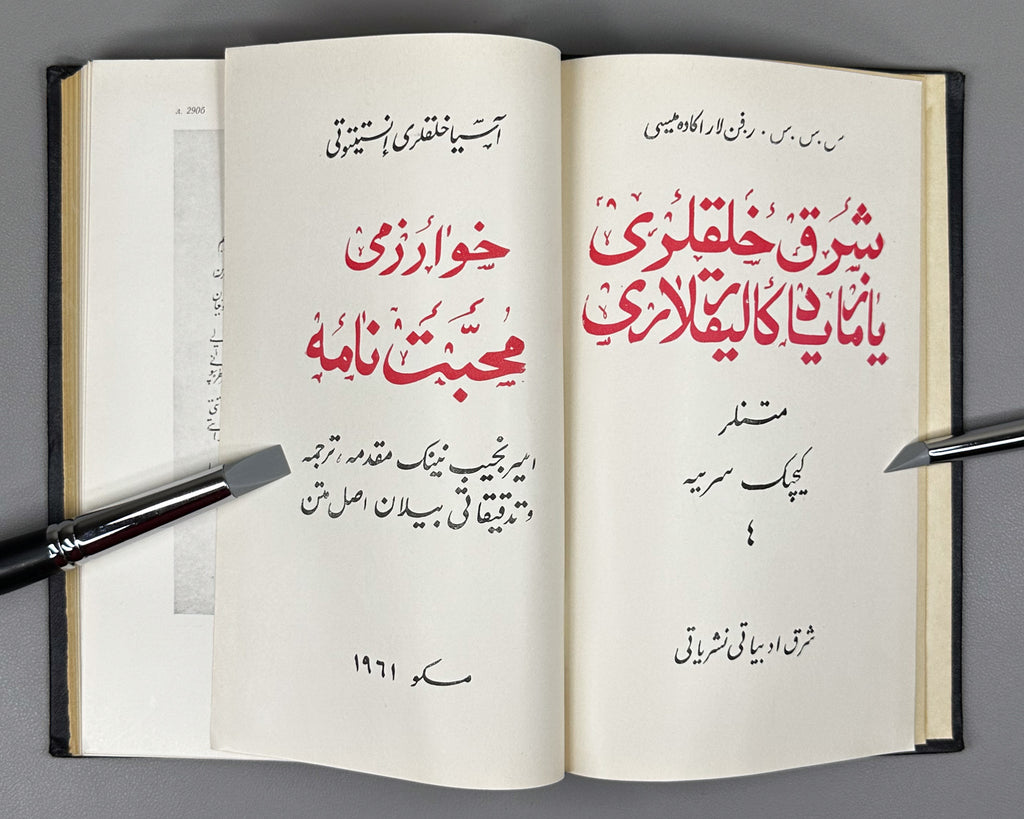 س. س. س. ر فن لار اکادەمیسی
شرق خلقلری
یازما یادکارلیقلاری
متنلر
کیچیک سریه
٤
شرق ادبیاتی نشریاتی
آسیا خلقلری إنستیتوتی
خوارزمی
محبّت نامه
امیر نجیب نینک مقدمه، ترجمه
و تدقیقاتی بیلان اصل متن
مسکو ١٩٦١
л. 290б